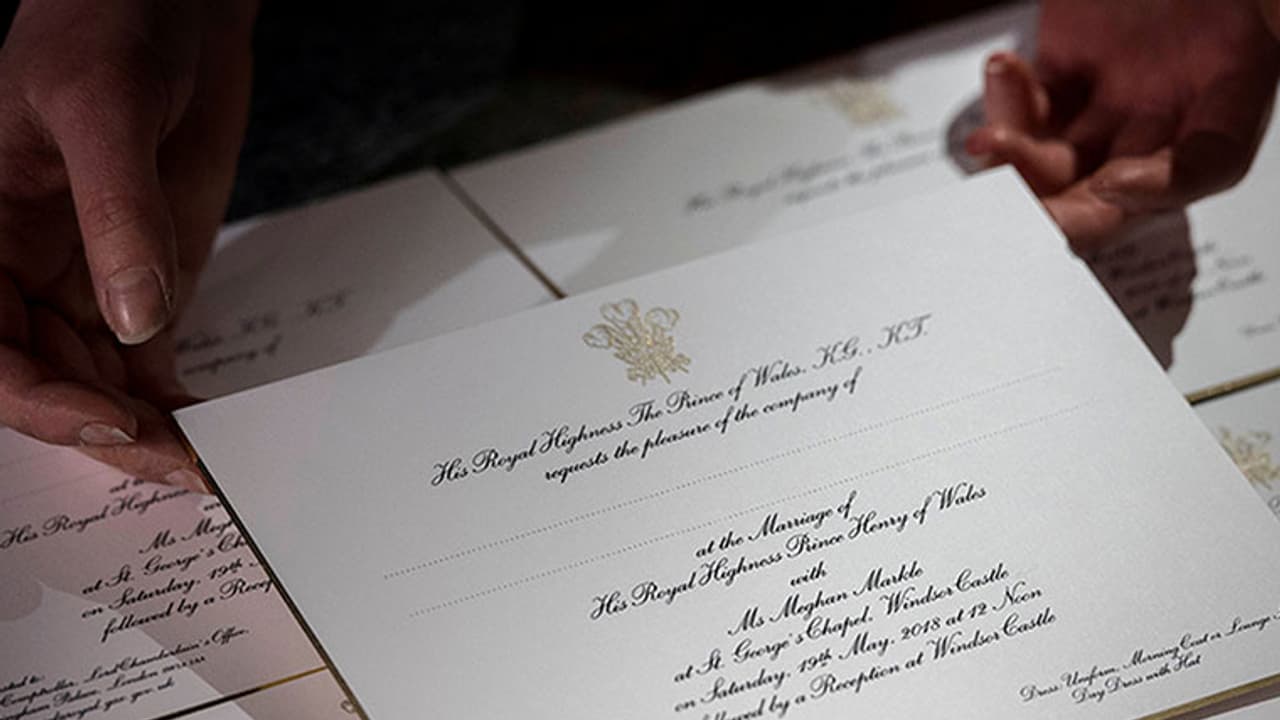 His Royal Highness The Prince of Wales, K.G., K.T.
requests the pleasure of the company of
at the Marriage of
His Royal Highness Prince Henry of Wales
with
Ms Meghan Markle
at St. George's Chapel, Windsor Castle
on Saturday, 19th May, 2018 at 12 Noon
followed by a Reception at Windsor Castle
Dress: Uniform, Morning Coat or Lounge
Day Dress with Hat
K.G., K.T.
company of
His Royal Highness
Ms Megh
at St. George's Cha
on Saturday, 19th
followed by a Recep
Comptroller, Lord Chamberlain's Office,
Palace, London SW1A 1AA